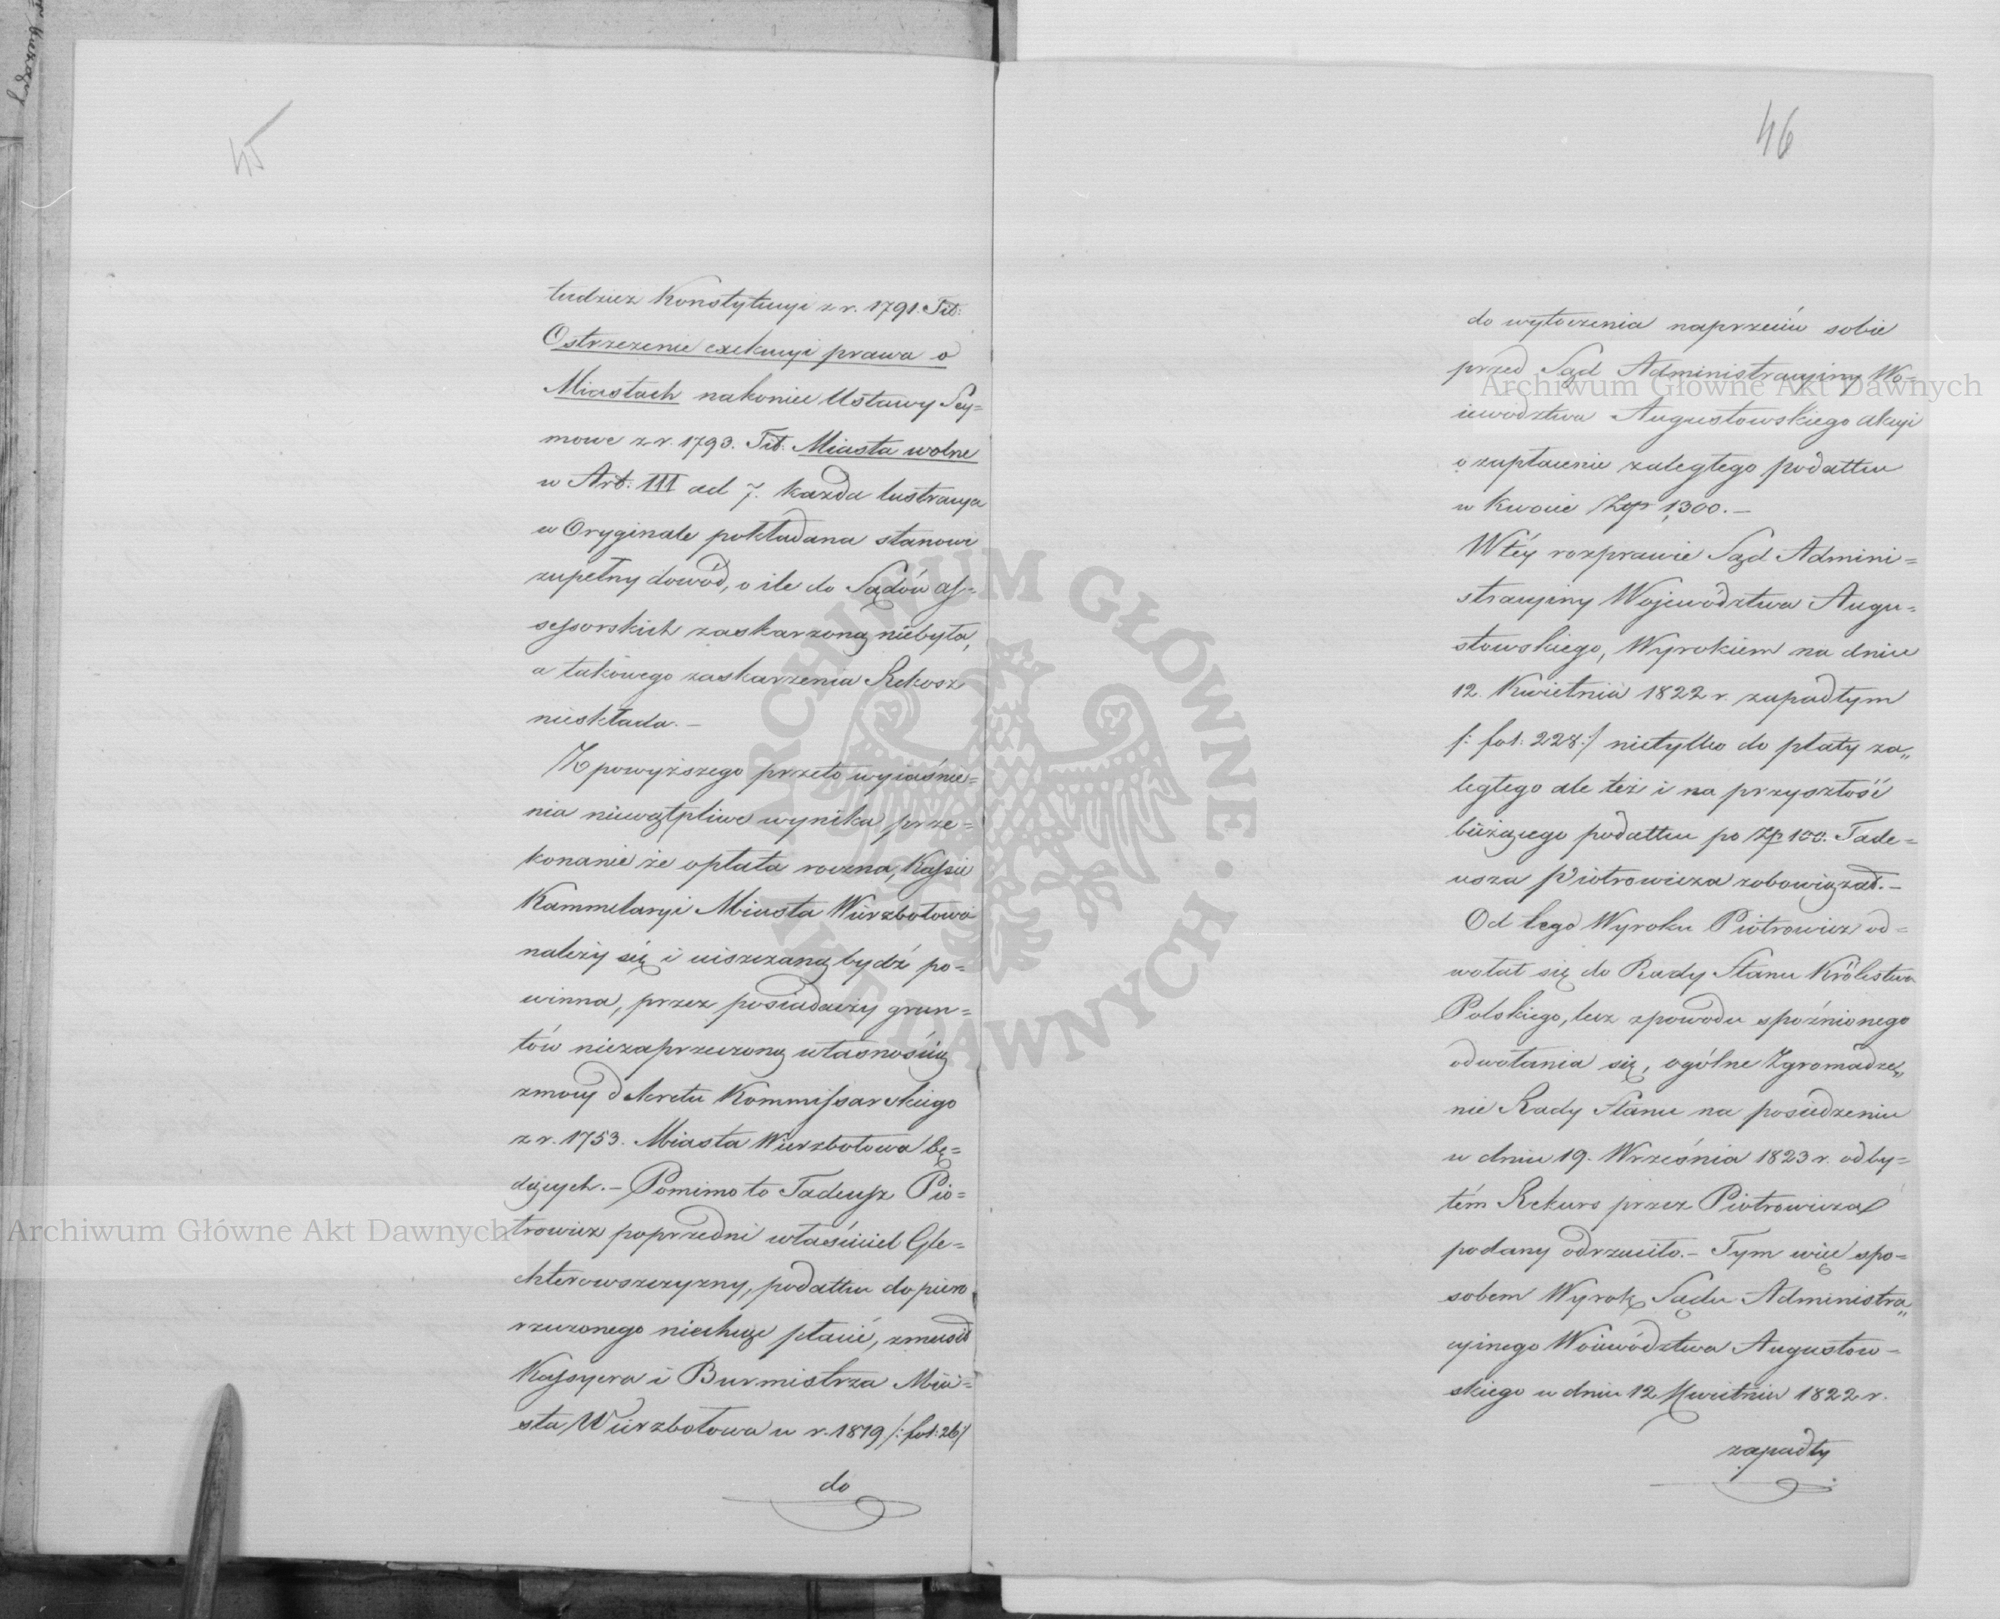 45
tudzież Konstytucyi z r. 1791. Tit:
Ostrzezenie exekucyi prawa o
Miastach nakoniec Ustawy Sey=
mowe z r. 1793. Tit. Miasta wolne
w Art: III ad 7. każda lustracya
w Oryginale pokładana stanowi
zupełny dowód, o ile do Sądów As=
sessorskich zaskarzoną niebyła,
a takowego zaskarzenia Rekosz
nieskłada. —
Z powyższego przeto wyiaśnie=
nia niewątpliwe wynika prze=
konanie że opłata roczna, Kassie
Kammelaryi Miasta Wierzbołowa
należy się i uiszczaną bydź po=
winna, przez posiadaczy grun=
tów niezaprzeczoną własnością
zmocy dekretu Kommissarskiego
z r. 1753. Miasta Wierzbołowa bę=
dących. — Pomimo to Tadeusz Pio=
trowicz poprzedni właściciel Gle=
chterowszczyzny, podatku dopiero
rzeczonego niechcąc płacić, zmusił
Kassyera i Burmistrza Mia=
sta Wierzbołowa w r. 1819 /: fol: 26/
do
46
do wytoczenia naprzeciw sobie
przed Sąd Administracyiny Wo=
iewodztwa Augustowskiego akcyi
o zapłacenie zaległego podatku
w kwocie Złp 1,300. —
W téy rozprawie Sąd Admini=
stracyiny Województwa Augu=
stowskiego, Wyrokiem na dniu
12. Kwietnia 1822 r. zapadłym
/: fol: 228:/ nietylko do płaty za„
ległego ale też i na przyszłość
bieżącego podatku po Złp 100. Tade=
usza Piotrowicza zobowiązał. —
Od tego Wyroku Piotrowicz od=
wołał się do Rady Stanu Królestwa
Polskiego, lecz zpowodu spóźnionego
odwołania się, ogólne Zgromadze„
nie Rady Stanu na posiedzeniu
w dniu 19. Września 1823 r. odby=
tém Rekurs przez Piotrowicza
podany odrzuciło. — Tym więc spo=
sobem Wyrok Sądu Administra„
cyinego Woiewództwa Augustow—
skiego w dniu 12 Kwietnia 1822 r.
zapadły
Archiwum Główne Akt Dawnych
Archiwum Główne Akt Dawnych
ARCHIWUM GŁÓWNE · AKT DAWNYCH ·